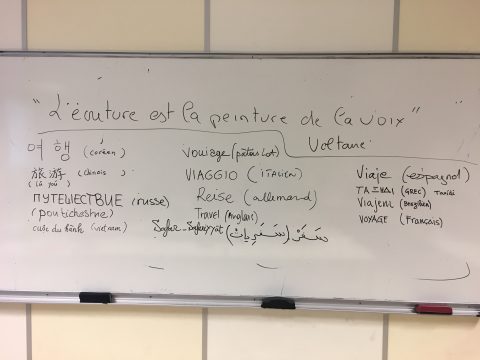 "L'écriture est la peinture de la voix"
Voltaire
여 행 (coréen)
旅 游 (chinois)
(lǚ yóu)
ПУТЕШЕСТВИЕ (russe)
(poutichestvie)
cuộc du hành (vietnam)
vouiege (patois Lot)
VIAGGIO (ITALIEN)
Reise (allemand)
Travel (Anglais)
سَفَرْ (سَفَرِيَاتْ)
Viaje (espagnol)
ΤΑΞΙΔΙ (GREC) Taxidi
Viajem (Brésilien)
VOYAGE (Français)